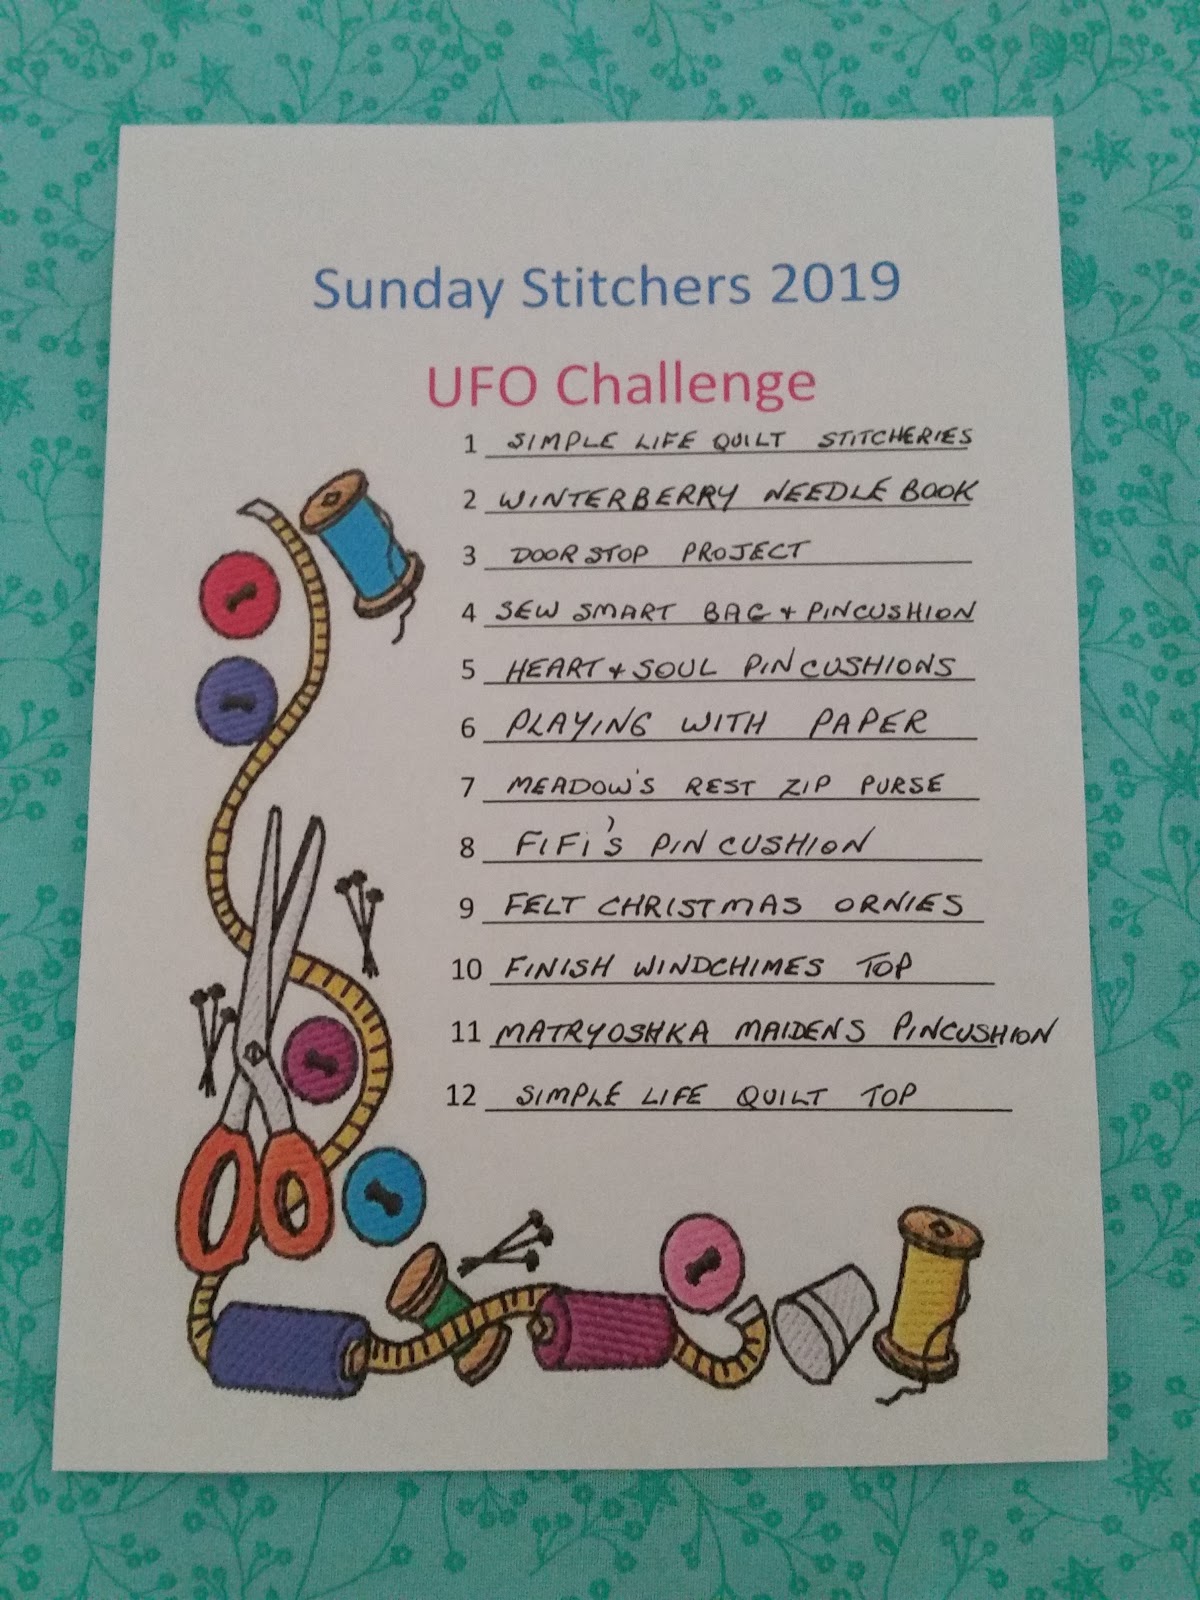 Sunday Stitchers 2019
UFO Challenge
1 SIMPLE LIFE QUILT STITCHERIES
2 WINTERBERRY NEEDLE BOOK
3 DOOR STOP PROJECT
4 SEW SMART BAG + PINCUSHION
5 HEART + SOUL PINCUSHIONS
6 PLAYING WITH PAPER
7 MEADOW'S REST ZIP PURSE
8 FIFI'S PIN CUSHION
9 FELT CHRISTMAS ORNIES
10 FINISH WINDCHIMES TOP
11 MATRYOSHKA MAIDENS PINCUSHION
12 SIMPLE LIFE QUILT TOP